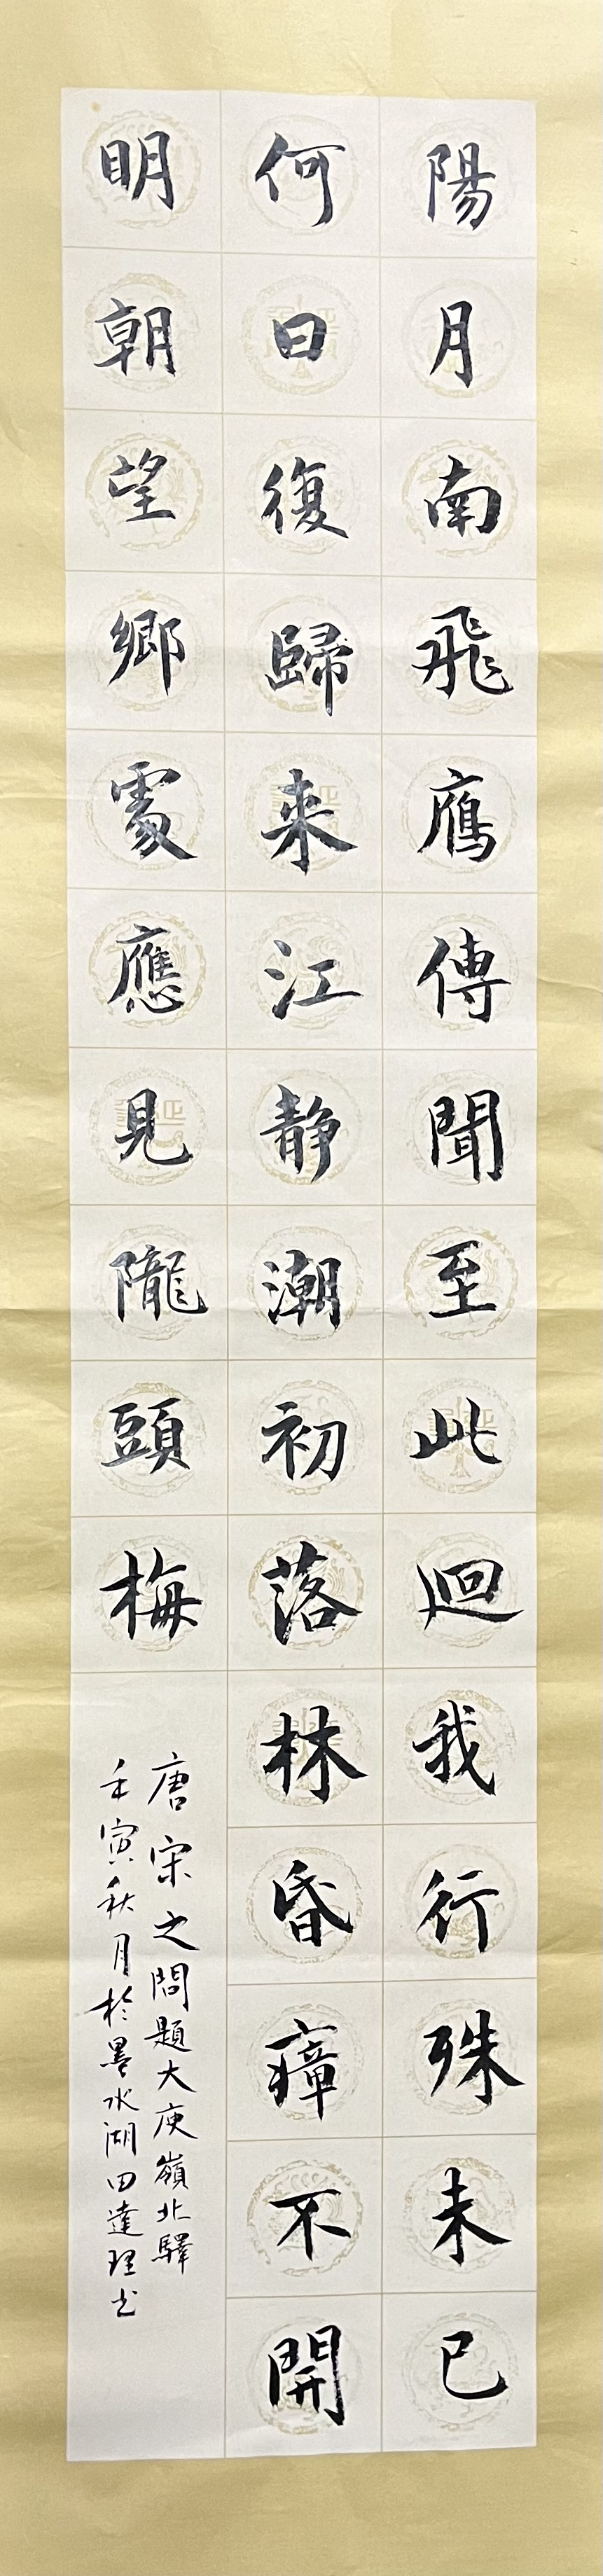 陽月南飛鴈傳聞至此迴我行殊未已
何日復歸来江静潮初落林昏瘴不開
明朝望鄉䖏應見隴頭梅
唐宋之問題大庾嶺北驛
壬寅秋月於墨水湖田達理书